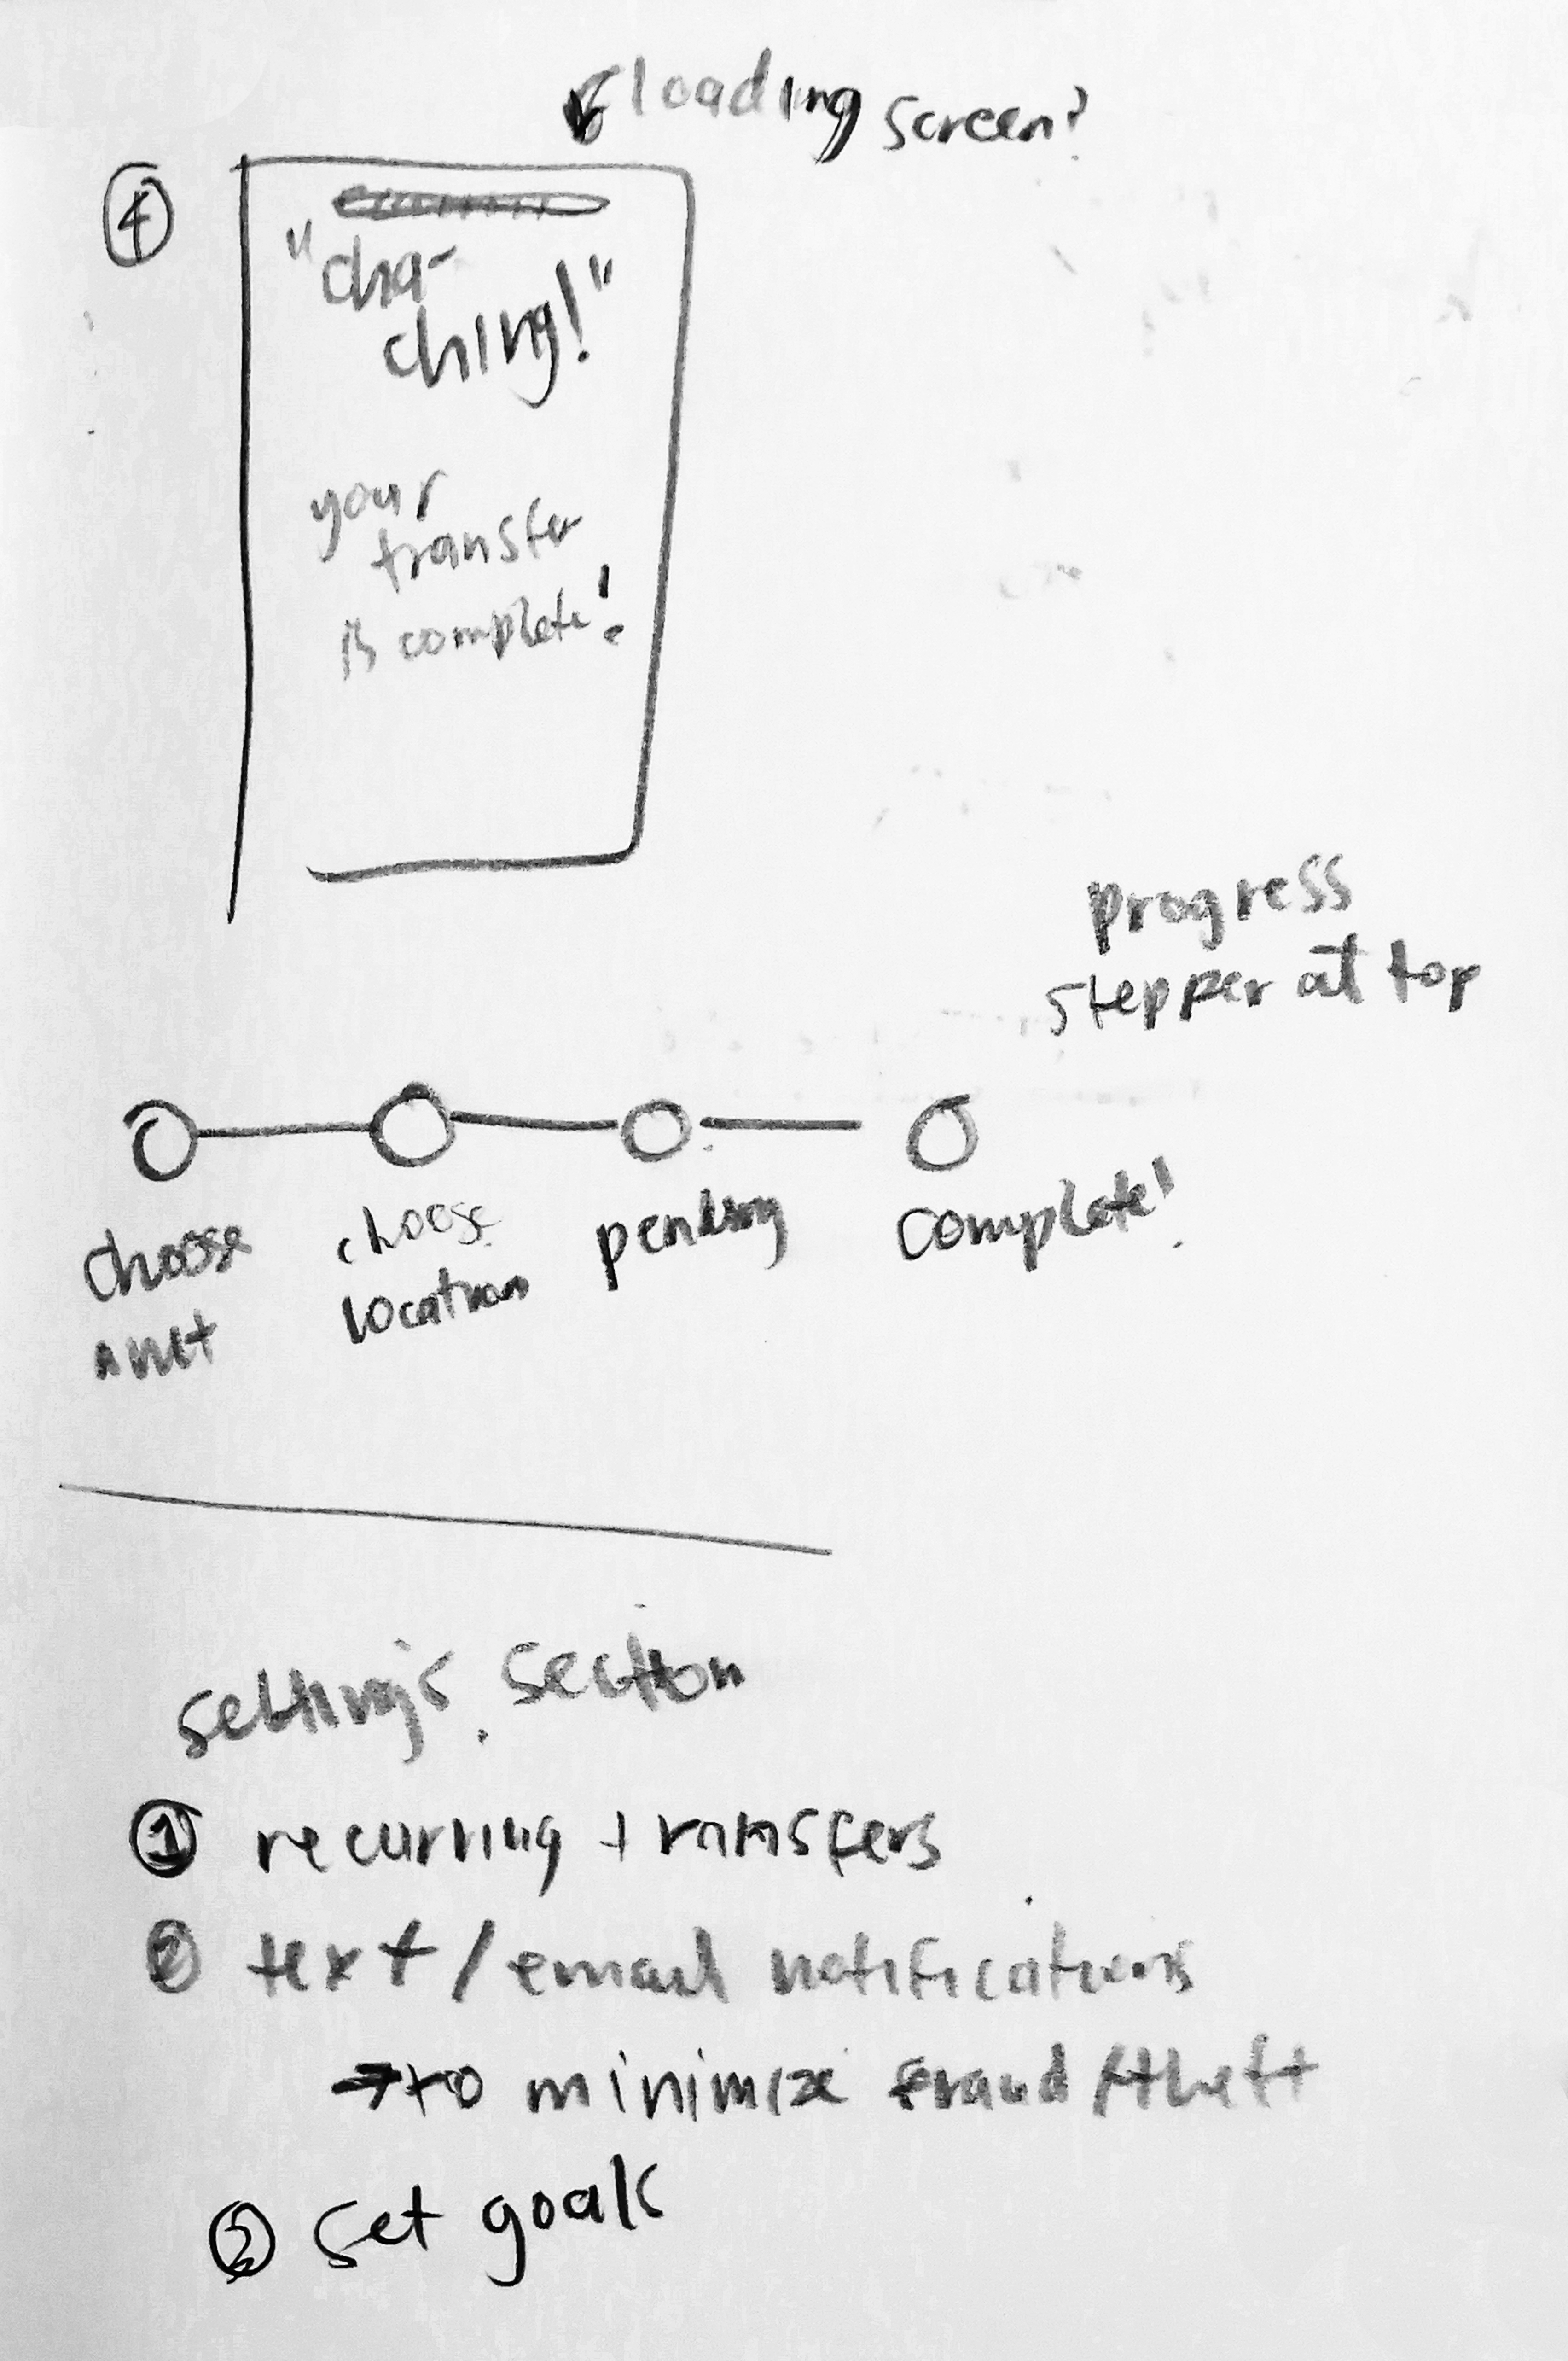 loading screen?
4
"cha-
ching!"
your
transfer
is complete!
progress
stepper at top
choose
amt
choose
location
pending
complete!
settings section
1 recurring transfers
2 text/email notifications
→ to minimize fraud/theft
3 set goals